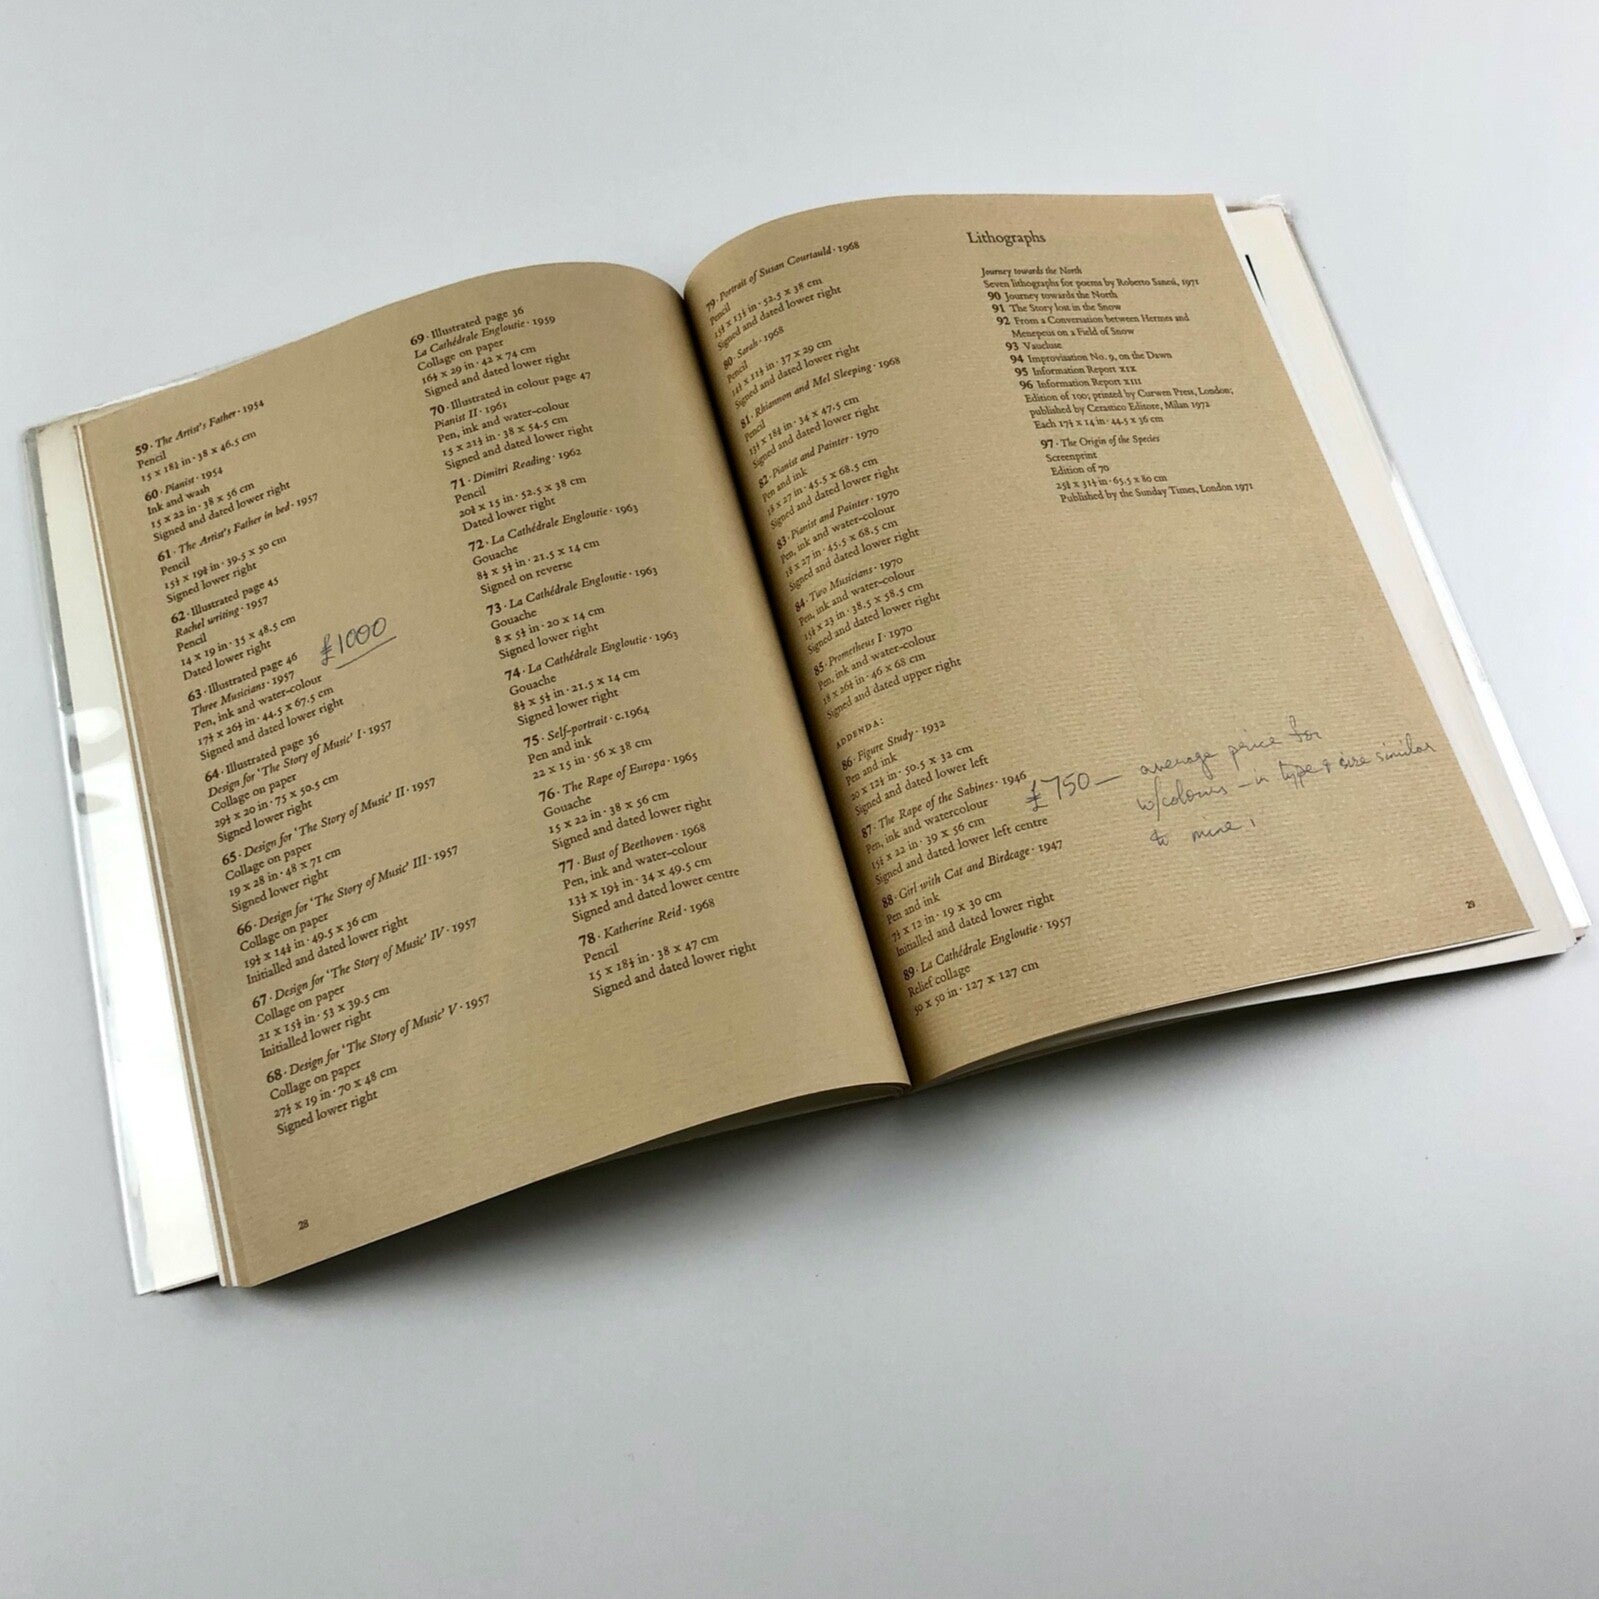 59 · The Artist's Father · 1954
Pencil
15 x 18¼ in · 38 x 46.5 cm
60 · Pianist · 1954
Ink and wash
15 x 22 in · 38 x 56 cm
Signed and dated lower right
61 · The Artist's Father in bed · 1957
Pencil
15½ x 19¾ in · 39.5 x 50 cm
Signed lower right
62 · Illustrated page 45
Rachel writing · 1957
Pencil
14 x 19 in · 35 x 48.5 cm
Dated lower right
£1000
63 · Illustrated page 46
Three Musicians · 1957
Pen, ink and water-colour
17½ x 26½ in · 44.5 x 67.5 cm
Signed and dated lower right
64 · Illustrated page 36
Design for 'The Story of Music' I · 1957
Collage on paper
29½ x 20 in · 75 x 50.5 cm
Signed lower right
65 · Design for 'The Story of Music' II · 1957
Collage on paper
19 x 28 in · 48 x 71 cm
Signed lower right
66 · Design for 'The Story of Music' III · 1957
Collage on paper
19½ x 14¼ in · 49.5 x 36 cm
Initialled and dated lower right
67 · Design for 'The Story of Music' IV · 1957
Collage on paper
21 x 15½ in · 53 x 39.5 cm
Initialled lower right
68 · Design for 'The Story of Music' V · 1957
Collage on paper
27½ x 19 in · 70 x 48 cm
Signed lower right
69 · Illustrated page 36
La Cathédrale Engloutie · 1959
Collage on paper
16½ x 29 in · 42 x 74 cm
Signed and dated lower right
70 · Illustrated in colour page 47
Pianist II · 1961
Pen, ink and water-colour
15 x 21½ in · 38 x 54.5 cm
Signed and dated lower right
71 · Dimitri Reading · 1962
Pencil
20¾ x 15 in · 52.5 x 38 cm
Dated lower right
72 · La Cathédrale Engloutie · 1963
Gouache
8½ x 5½ in · 21.5 x 14 cm
Signed on reverse
73 · La Cathédrale Engloutie · 1963
Gouache
8 x 5½ in · 20 x 14 cm
Signed lower right
74 · La Cathédrale Engloutie · 1963
Gouache
8½ x 5½ in · 21.5 x 14 cm
Signed lower right
75 · Self-portrait · c.1964
Pen and ink
22 x 15 in · 56 x 38 cm
76 · The Rape of Europa · 1965
Gouache
15 x 22 in · 38 x 56 cm
Signed and dated lower right
77 · Bust of Beethoven · 1968
Pen, ink and water-colour
13½ x 19½ in · 34 x 49.5 cm
Signed and dated lower centre
78 · Katherine Reid · 1968
Pencil
15 x 18½ in · 38 x 47 cm
Signed and dated lower right
28
79 · Portrait of Susan Courtauld · 1968
Pencil
in · 52.5 x 38 cm
Signed and dated lower right
80 · Sarah · 1968
Pencil
14½ x 11½ in · 37 x 29 cm
Signed and dated lower right
81 · Rhiannon and Mel Sleeping · 1968
Pencil
13½ x 18¾ in · 34 x 47.5 cm
Signed and dated lower right
82 · Pianist and Painter · 1970
Pen and ink
18 x 27 in · 45.5 x 68.5 cm
Signed and dated lower right
83 · Pianist and Painter · 1970
Pen, ink and water-colour
18 x 27 in · 45.5 x 68.5 cm
Signed and dated lower right
84 · Two Musicians · 1970
Pen, ink and water-colour
15¼ x 23 in · 38.5 x 58.5 cm
Signed and dated lower right
85 · Prometheus I · 1970
Pen, ink and water-colour
18 x 26¾ in · 46 x 68 cm
Signed and dated upper right
ADDENDA:
86 · Figure Study · 1932
Pen and ink
20 x 12½ in · 50.5 x 32 cm
Signed and dated lower left
87 · The Rape of the Sabines · 1946
Pen, ink and watercolour
15½ x 22 in · 39 x 56 cm
Signed and dated lower left centre
88 · Girl with Cat and Birdcage · 1947
Pen and ink
7½ x 12 in · 19 x 30 cm
Initialled and dated lower right
89 · La Cathédrale Engloutie · 1957
Relief collage
50 x 50 in · 127 x 127 cm
Lithographs
Journey towards the North
Seven lithographs for poems by Roberto Sanesi, 1971
90 Journey towards the North
91 The Story lost in the Snow
92 From a Conversation between Hermes and
Menepeus on a Field of Snow
93 Vaucluse
94 Improvisation No. 9, on the Dawn
95 Information Report XIX
96 Information Report XIII
Edition of 100; printed by Curwen Press, London;
published by Cerastico Editore, Milan 1972
Each 17½ x 14 in · 44.5 x 36 cm
97 · The Origin of the Species
Screenprint
Edition of 70
25¾ x 31½ in · 65.5 x 80 cm
Published by the Sunday Times, London 1971
£750 — average price for
w/colours — in type & size similar
to mine!
29